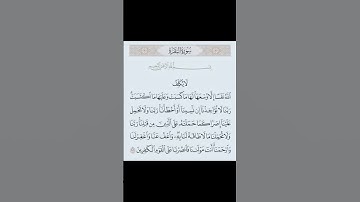 سُورَةُ البَقَرَةِ
بِسْمِ اللَّهِ الرَّحْمَٰنِ الرَّحِيمِ
لَا يُكَلِّفُ
اللَّهُ نَفْسًا إِلَّا وُسْعَهَا لَهَا مَا كَسَبَتْ وَعَلَيْهَا مَا اكْتَسَبَتْ
رَبَّنَا لَا تُؤَاخِذْنَا إِن نَّسِينَا أَوْ أَخْطَأْنَا رَبَّنَا وَلَا تَحْمِلْ
عَلَيْنَا إِصْرًا كَمَا حَمَلْتَهُ عَلَى الَّذِينَ مِن قَبْلِنَا رَبَّنَا
وَلَا تُحَمِّلْنَا مَا لَا طَاقَةَ لَنَا بِهِ وَاعْفُ عَنَّا وَاغْفِرْ لَنَا
وَارْحَمْنَا أَنتَ مَوْلَانَا فَانصُرْنَا عَلَى الْقَوْمِ الْكَافِرِينَ